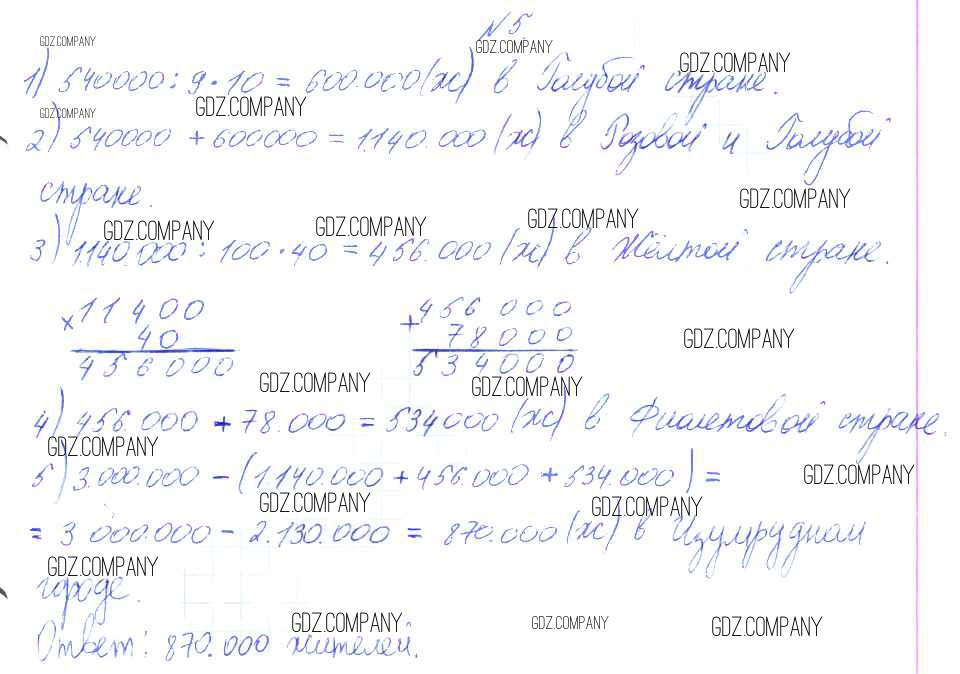 №5
GDZ.COMPANY GDZ.COMPANY GDZ.COMPANY
1) 540000 : 9 · 10 = 600.000 (ж) в Голубой стране.
GDZ.COMPANY GDZ.COMPANY
2) 540000 + 600000 = 1.140.000 (ж) в Розовой и Голубой
стране.
GDZ.COMPANY
GDZ.COMPANY GDZ.COMPANY GDZ.COMPANY
3) 1.140.000 : 100 · 40 = 456.000 (ж) в Жёлтой стране.
× 11400 + 456 000
40 78000
456000 534000
GDZ.COMPANY
GDZ.COMPANY GDZ.COMPANY
4) 456.000 + 78.000 = 534000 (ж) в Фиолетовой стране.
GDZ.COMPANY
5) 3.000.000 - (1.140.000 + 456.000 + 534.000) =
GDZ.COMPANY
GDZ.COMPANY GDZ.COMPANY
= 3 000.000 - 2.130.000 = 870.000 (ж) в Изумрудном
GDZ.COMPANY
городе.
GDZ.COMPANY GDZ.COMPANY GDZ.COMPANY
Ответ: 870.000 жителей.